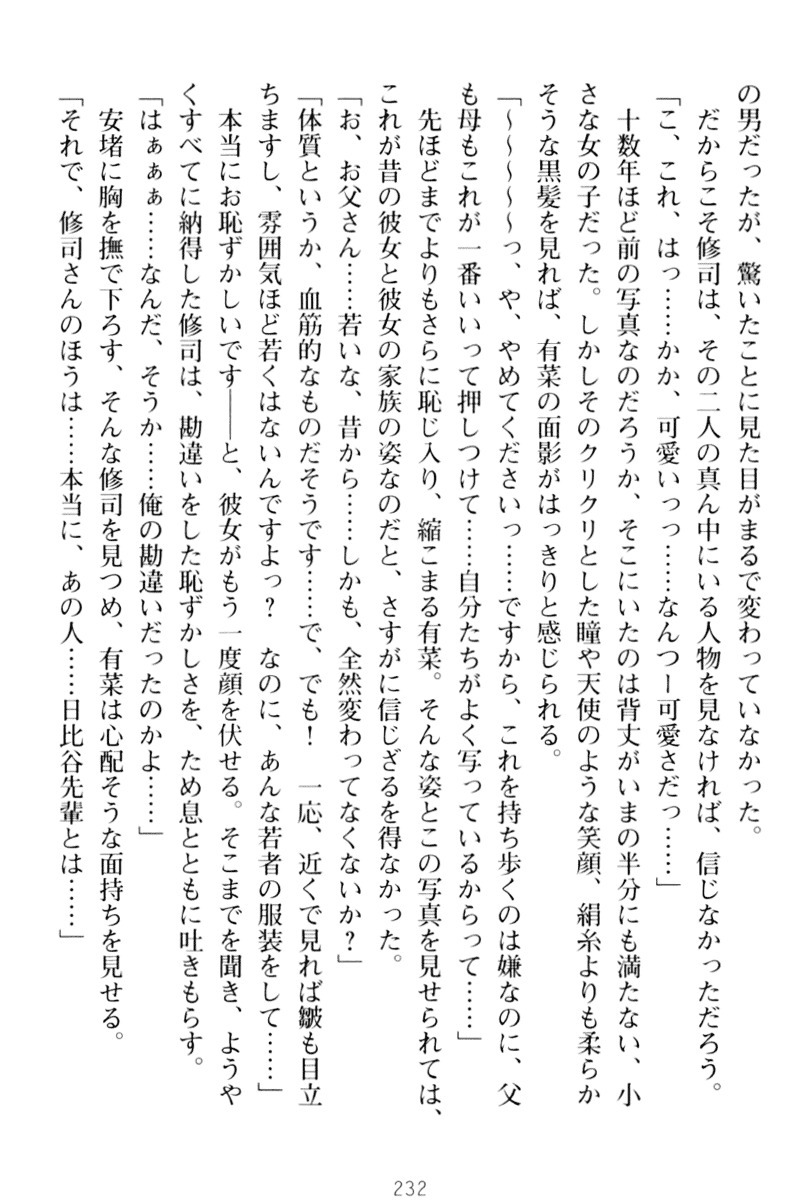 の男だったが、驚いたことに見た目がまるで変わっていなかった。
　だからこそ修司は、その二人の真ん中にいる人物を見なければ、信じなかっただろう。
「こ、これ、はっ……かか、可愛いっっ……なんつー可愛さだっ……」
　十数年ほど前の写真なのだろうか、そこにいたのは背丈がいまの半分にも満たない、小
さな女の子だった。しかしそのクリクリとした瞳や天使のような笑顔、絹糸よりも柔らか
そうな黒髪を見れば、有菜の面影がはっきりと感じられる。
「〜〜〜〜〜っ、や、やめてくださいっ……ですから、これを持ち歩くのは嫌なのに、父
も母もこれが一番いいって押しつけて……自分たちがよく写っているからって……」
　先ほどまでよりもさらに恥じ入り、縮こまる有菜。そんな姿とこの写真を見せられては、
これが昔の彼女と彼女の家族の姿なのだと、さすがに信じざるを得なかった。
「お、お父さん……若いな、昔から……しかも、全然変わってなくないか？」
「体質というか、血筋的なものだそうです……で、でも！　一応、近くで見れば皺も目立
ちますし、雰囲気ほど若くはないんですよっ？　なのに、あんな若者の服装をして……」
　本当にお恥ずかしいです――と、彼女がもう一度顔を伏せる。そこまでを聞き、ようや
くすべてに納得した修司は、勘違いをした恥ずかしさを、ため息とともに吐きもらす。
「はぁぁぁ……なんだ、そうか……俺の勘違いだったのかよ……」
　安堵に胸を撫で下ろす、そんな修司を見つめ、有菜は心配そうな面持ちを見せる。
「それで、修司さんのほうは……本当に、あの人……日比谷先輩とは……」
232